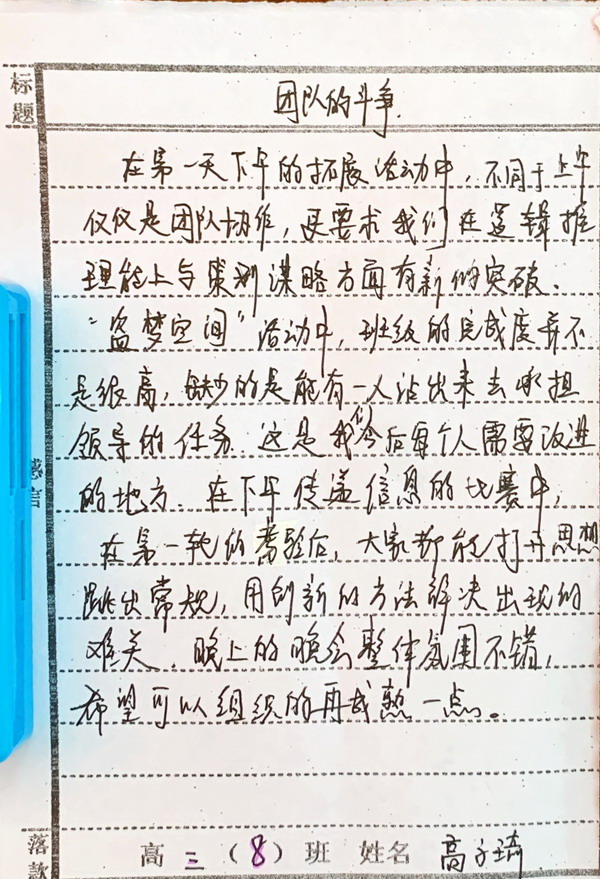 标题
团队的斗争
在第一天下午的拓展活动中，不同于上午
仅仅是团队协作，更要求我们在逻辑推
理能上与策划谋略方面有新的突破、
“盗梦空间”活动中，班级的完成度并不
是很高，缺少的是能有一人站出来去承担
领导的任务、这是我们今后每个人需要改进
的地方、在下午传递信息的比赛中，
在第一轮的考验后，大家都能打开思想
跳出常规，用创新的方法解决出现的
难关、晚上的晚会整体氛围不错，
希望可以组织的再成熟一点。
感言
落款
高三（8）班 姓名 高子琦